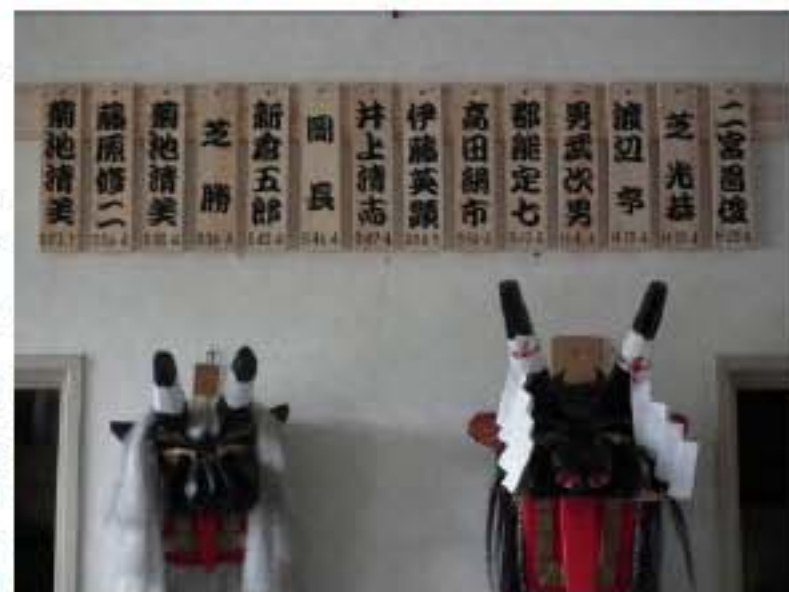 菊池清美
藤原修二
菊池清美
芝勝
新倉五郎
岡長
井上清志
伊藤英顕
高田絹市
郡能定七
男武次男
渡辺享
芝光恭
二宮昌俊